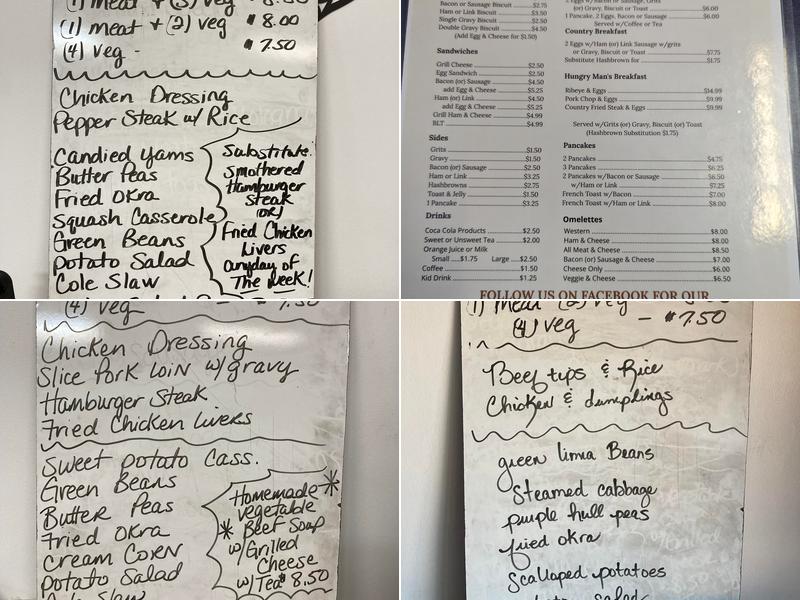 (1) meat + (3) veg $ 8.50
(1) meat + (2) veg $ 8.00
(4) veg - $ 7.50
Chicken Dressing
Pepper Steak w/ Rice
Candied yams
Butter Peas
Fried Okra
Squash Casserole
Green Beans
Potato Salad
Cole Slaw
Substitute
Smothered
Hamburger
Steak
(OR)
Fried Chicken
Livers
anyday of
The Week!
Bacon or Sausage Biscuit $2.75
Ham or Link Biscuit $3.50
Single Gravy Biscuit $2.50
Double Gravy Biscuit $4.50
(Add Egg & Cheese for $1.50)
Sandwiches
Grill Cheese $2.50
Egg Sandwich $2.50
Bacon (or) Sausage $4.50
add Egg & Cheese $5.25
Ham (or) Link $4.50
add Egg & Cheese $5.25
Grill Ham & Cheese $4.99
BLT $4.99
Sides
Grits $1.50
Gravy $1.50
Bacon (or) Sausage $2.50
Ham or Link $3.25
Hashbrowns $2.75
Toast & Jelly $1.50
1 Pancake $3.25
Drinks
Coca Cola Products $2.50
Sweet or Unsweet Tea $2.00
Orange Juice or Milk
Small $1.75 Large $2.50
Coffee $1.50
Kid Drink $1.25
(or) Gravy, Biscuit or Toast $6.00
1 Pancake, 2 Eggs, Bacon or Sausage $6.00
Served w/Coffee or Tea
Country Breakfast
2 Eggs w/Ham (or) Link Sausage w/grits
or Gravy, Biscuit or Toast $7.75
Substitute Hashbrown for $1.75
Hungry Man's Breakfast
Ribeye & Eggs $14.99
Pork Chop & Eggs $9.99
Country Fried Steak & Eggs $9.99
Served w/Grits (or) Gravy, Biscuit (or) Toast
(Hashbrown Substitution $1.75)
Pancakes
2 Pancakes $4.75
3 Pancakes $6.25
2 Pancakes w/Bacon or Sausage $6.50
w/Ham or Link $7.25
French Toast w/Bacon $7.00
French Toast w/Ham or Link $8.00
Omelettes
Western $8.00
Ham & Cheese $8.00
All Meat & Cheese $8.50
Bacon (or) Sausage & Cheese $7.00
Cheese Only $6.00
Veggie & Cheese $6.50
FOLLOW US ON FACEBOOK FOR OUR
(4) veg - 7.50
Chicken Dressing
Slice Pork Loin w/gravy
Hamburger Steak
Fried Chicken Livers
Sweet Potato Cass.
Green Beans
Butter Peas
Fried Okra
Cream Corn
Potato Salad
Cole Slaw
Homemade
vegetable
Beef Soup
w/ Grilled
Cheese
w/Tea $ 8.50
(4) veg - $7.50
Beef tips & Rice
Chicken & dumplings
green limia Beans
Steamed cabbage
purple hull peas
fried okra
Scalloped potatoes